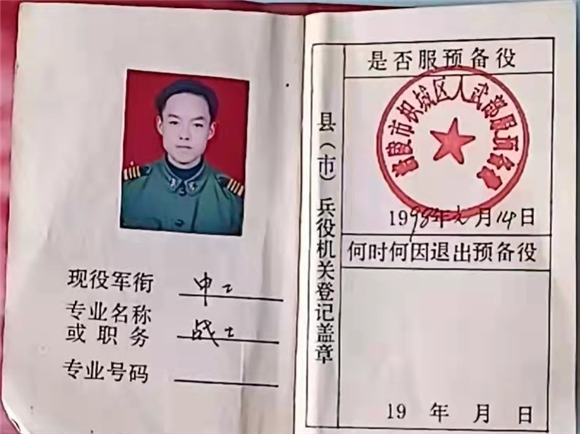 现役军衔 中士
专业名称
或职务 战士
专业号码
县（市）兵役机关登记盖章
是否服预备役
涪陵市枳城区人武部
1998年九月14日
何时何因退出预备役
19 年 月 日